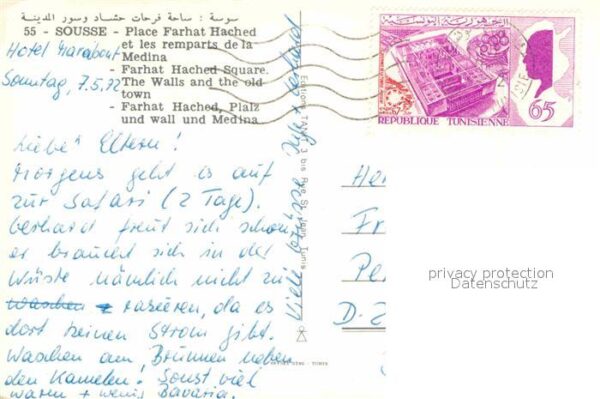 سوسة : ساحة فرحات حشاد وسور المدينة
55 - SOUSSE - Place Farhat Hached
et les remparts de la
Medina
- Farhat Hached Square.
The Walls and the old
town
- Farhat Hached, Plalz
und wall und Medina
Hotel Marabout
Sonntag, 7.5.72
Liebe Eltern!
Morgens geht es auf
zur Safari (2 Tage).
Gerhard freut sich schon,
er braucht sich in der
Wüste nämlich nicht zu
waschen + rasieren, da es
dort keinen Strom gibt.
Waschen am Brunnen neben
den Kamelen! Sonst viel
warm + wenig Bavaria.
Viele Grüsse + Gerhard
Editions TANIT, 3 bis Rue St Jean, Tunis
REPUBLIQUE TUNISIENNE
65
He
Fr
Pe
D-2
privacy protection
Datenschutz